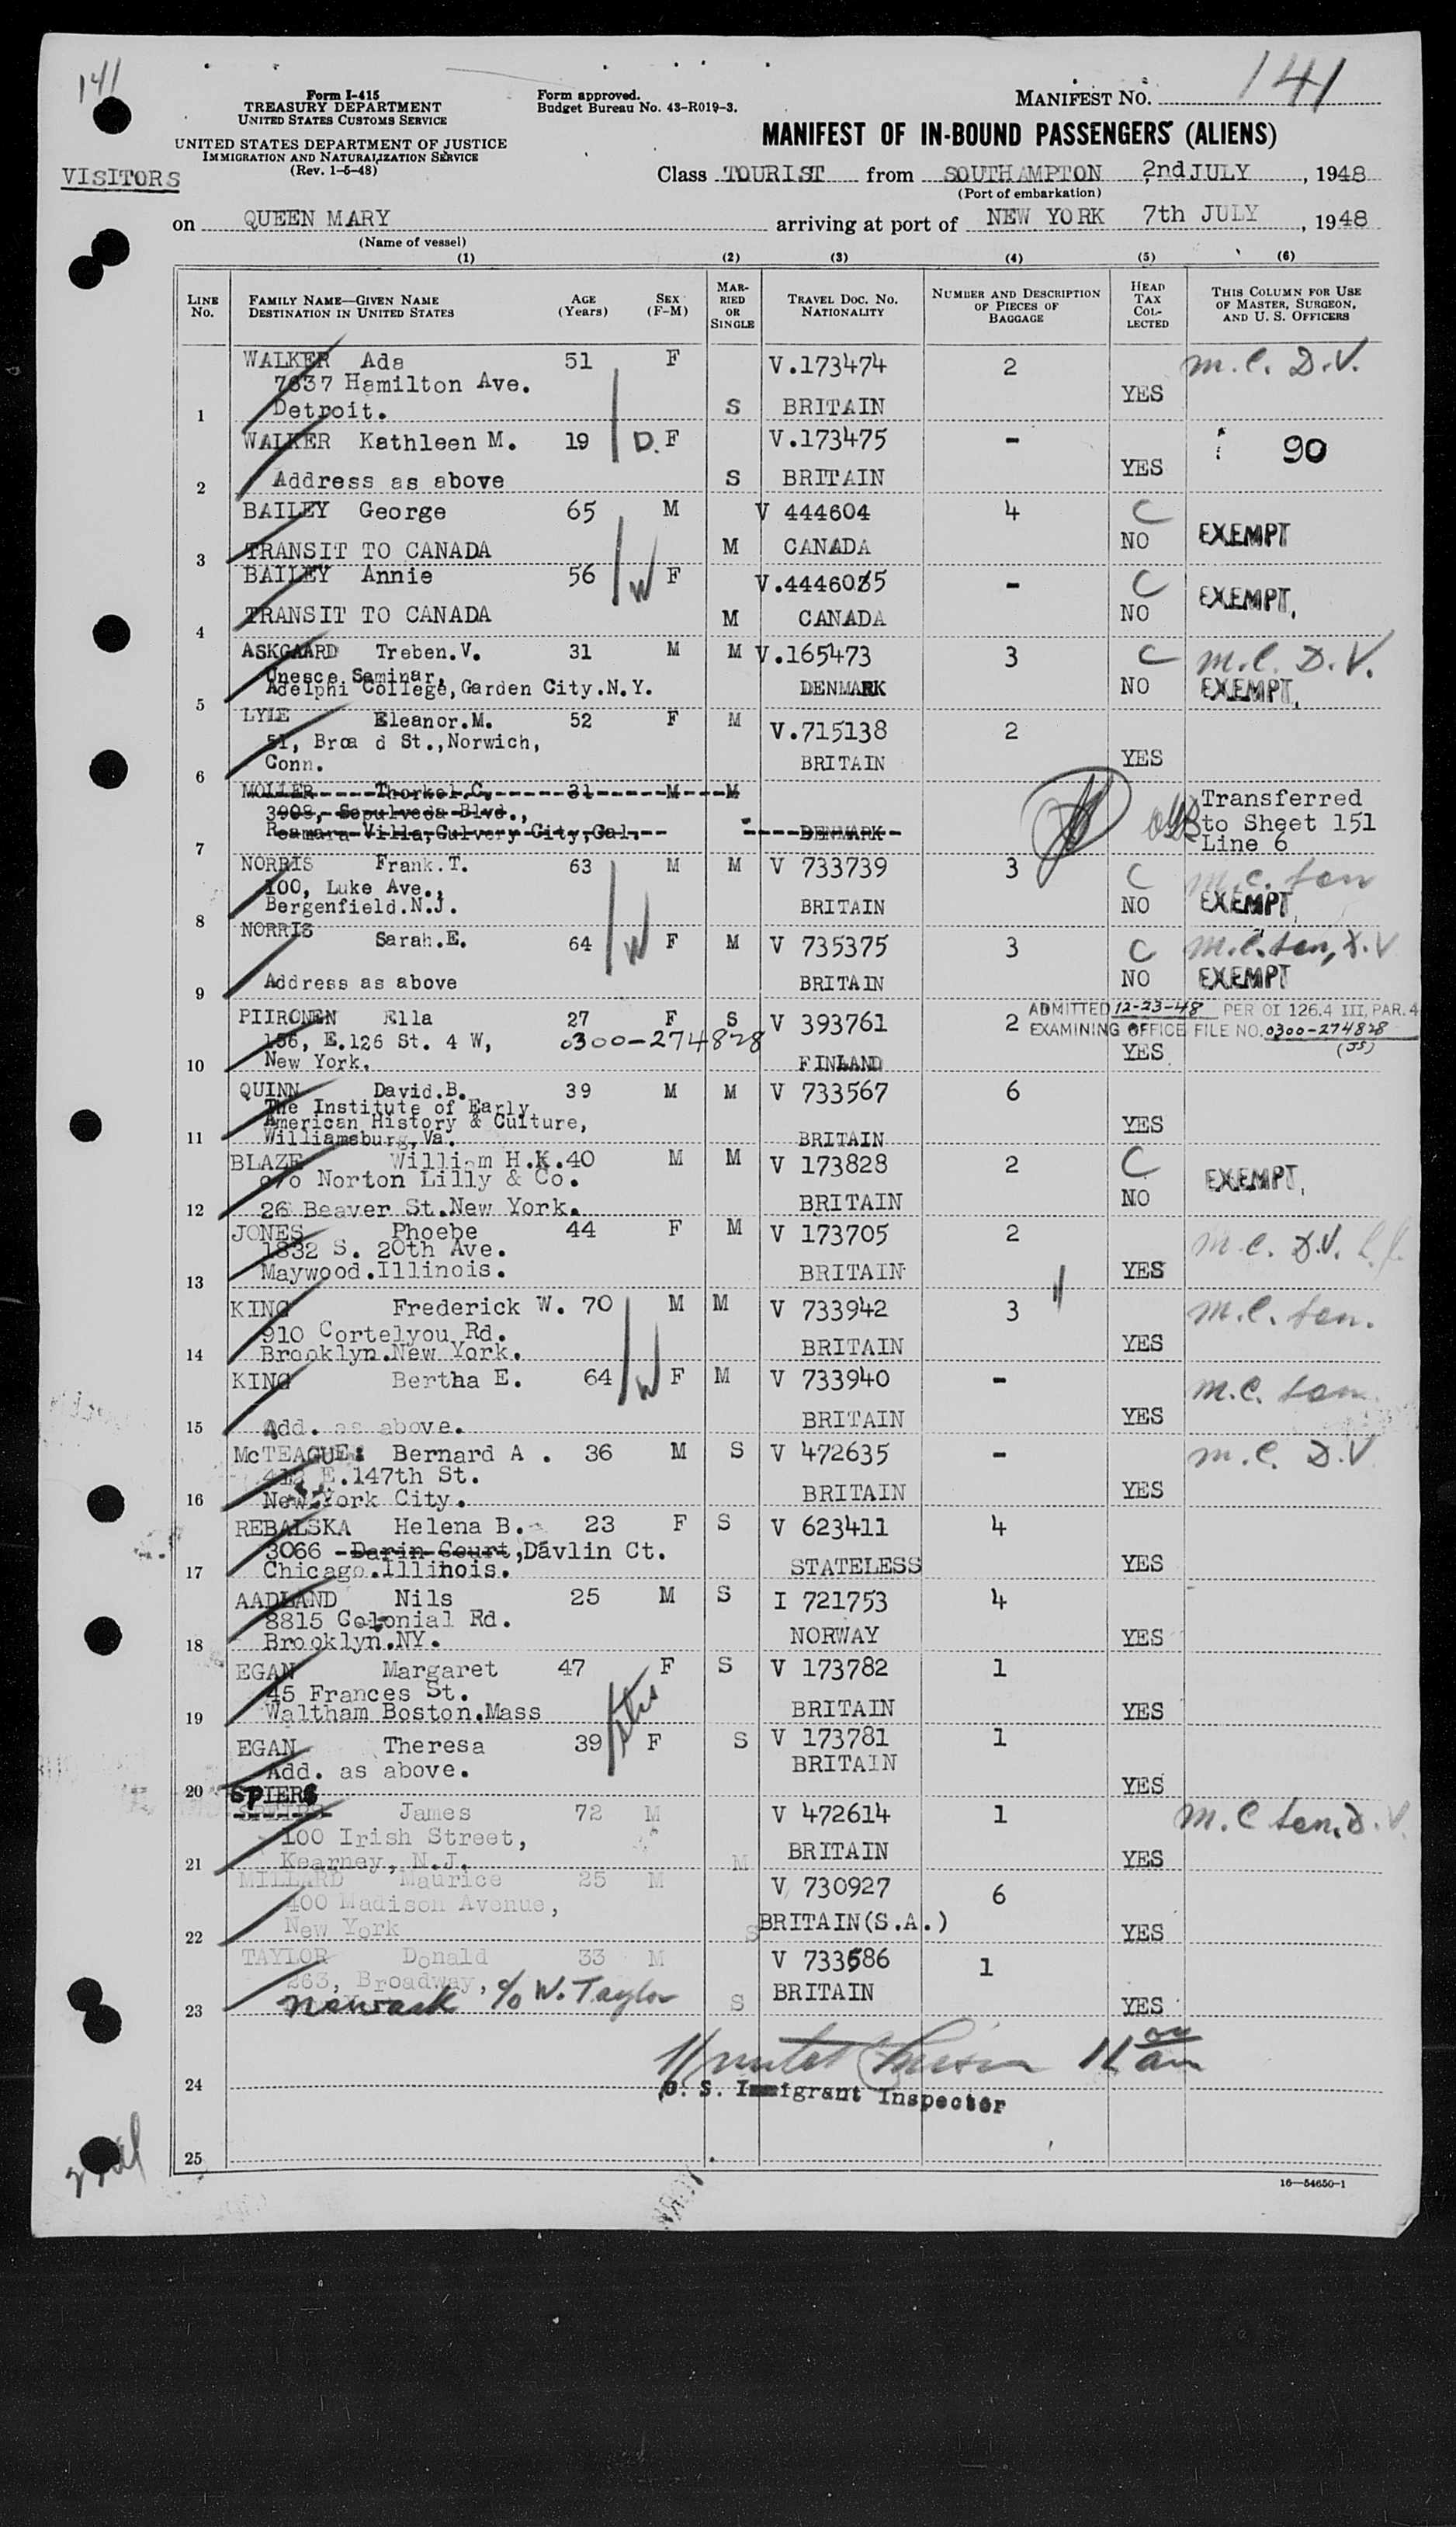 141
Form I-415
TREASURY DEPARTMENT
UNITED STATES CUSTOMS SERVICE
UNITED STATES DEPARTMENT OF JUSTICE
IMMIGRATION AND NATURALIZATION SERVICE
(Rev. 1-5-48)
Form approved.
Budget Bureau No. 43-R019-3.
MANIFEST NO. 141
MANIFEST OF IN-BOUND PASSENGERS (ALIENS)
VISITORS
Class TOURIST from SOUTHAMPTON 2nd JULY, 1948
(Port of embarkation)
on QUEEN MARY arriving at port of NEW YORK 7th JULY, 1948
(Name of vessel)
(1) (2) (3) (4) (5) (6)
LINE No. FAMILY NAME—GIVEN NAME DESTINATION IN UNITED STATES AGE (Years) SEX (F-M) MARRIED OR SINGLE TRAVEL DOC. NO. NATIONALITY NUMBER AND DESCRIPTION OF PIECES OF BAGGAGE HEAD TAX COLLECTED THIS COLUMN FOR USE OF MASTER, SURGEON, AND U. S. OFFICERS
WALKER Ada 51 F V.173474 2 m.c. D.V.
7637 Hamilton Ave. YES
1 Detroit. S BRITAIN
WALKER Kathleen M. 19 D. F V.173475 - 90
2 Address as above S BRITAIN YES
BAILEY George 65 M V 444604 4 C
3 TRANSIT TO CANADA M CANADA NO EXEMPT
BAILEY Annie 56 W F V.444605 - C
4 TRANSIT TO CANADA M CANADA NO EXEMPT.
ASKGAARD Treben.V. 31 M M V.165473 3 C m.c. D.V.
Unesco Seminar,
5 Adelphi College, Garden City.N.Y. DENMARK NO EXEMPT.
LYLE Eleanor.M. 52 F M V.715138 2
51, Broa d St., Norwich,
6 Conn. BRITAIN YES
MOLLER Thorkel.C. 31 M M Transferred
3908, Sepulveda Blvd., to Sheet 151
7 Rosmara Villa, Culvery City, Cal. DENMARK Line 6
NORRIS Frank.T. 63 M M V 733739 3 C m.c.
100, Luke Ave.,
8 Bergenfield.N.J. BRITAIN NO EXEMPT.
NORRIS Sarah.E. 64 W F M V 735375 3 C m.c.
9 Address as above BRITAIN NO EXEMPT
PIIRONEN Ella 27 F S V 393761 2 ADMITTED 12-23-48 PER OI 126.4 III, PAR. 4
156, E.126 St. 4 W, 0300-274828 EXAMINING OFFICE FILE NO. 0300-274828
10 New York. FINLAND YES (JS)
QUINN David.B. 39 M M V 733567 6
The Institute of Early
American History & Culture,
11 Williamsburg, Va. BRITAIN YES
BLAZE William H.K. 40 M M V 173828 2 C
c/o Norton Lilly & Co. EXEMPT.
12 26 Beaver St.New York. BRITAIN NO
JONES Phoebe 44 F M V 173705 2 m.c. D.V.
1832 S. 20th Ave.
13 Maywood.Illinois. BRITAIN YES
KING Frederick W. 70 M M V 733942 3 m.c.
910 Cortelyou Rd.
14 Brooklyn.New York. BRITAIN YES
KING Bertha E. 64 W F M V 733940 - m.c.
15 Add. as above. BRITAIN YES
McTEAGUE Bernard A . 36 M S V 472635 - m.c. D.V
E.147th St.
16 New York City. BRITAIN YES
REBALSKA Helena B. 23 F S V 623411 4
3066 Darin Court, Davlin Ct.
17 Chicago.Illinois. STATELESS YES
AADLAND Nils 25 M S I 721753 4
8815 Colonial Rd.
18 Brooklyn.NY. NORWAY YES
EGAN Margaret 47 F S V 173782 1
45 Frances St.
19 Waltham Boston.Mass BRITAIN YES
EGAN Theresa 39 F S V 173781 1
Add. as above. BRITAIN
20 YES
SPIERS
James 72 M V 472614 1 m.c D.V.
100 Irish Street,
21 Kearney, N.J. M BRITAIN YES
MILLARD Maurice 25 M V 730927 6
400 Madison Avenue,
22 New York S BRITAIN(S.A.) YES
TAYLOR Donald 33 M V 733586 1
263, Broadway,
23 Newark c/o W. Taylor S BRITAIN YES
24 U. S. Immigrant Inspector
25
16—54650-1